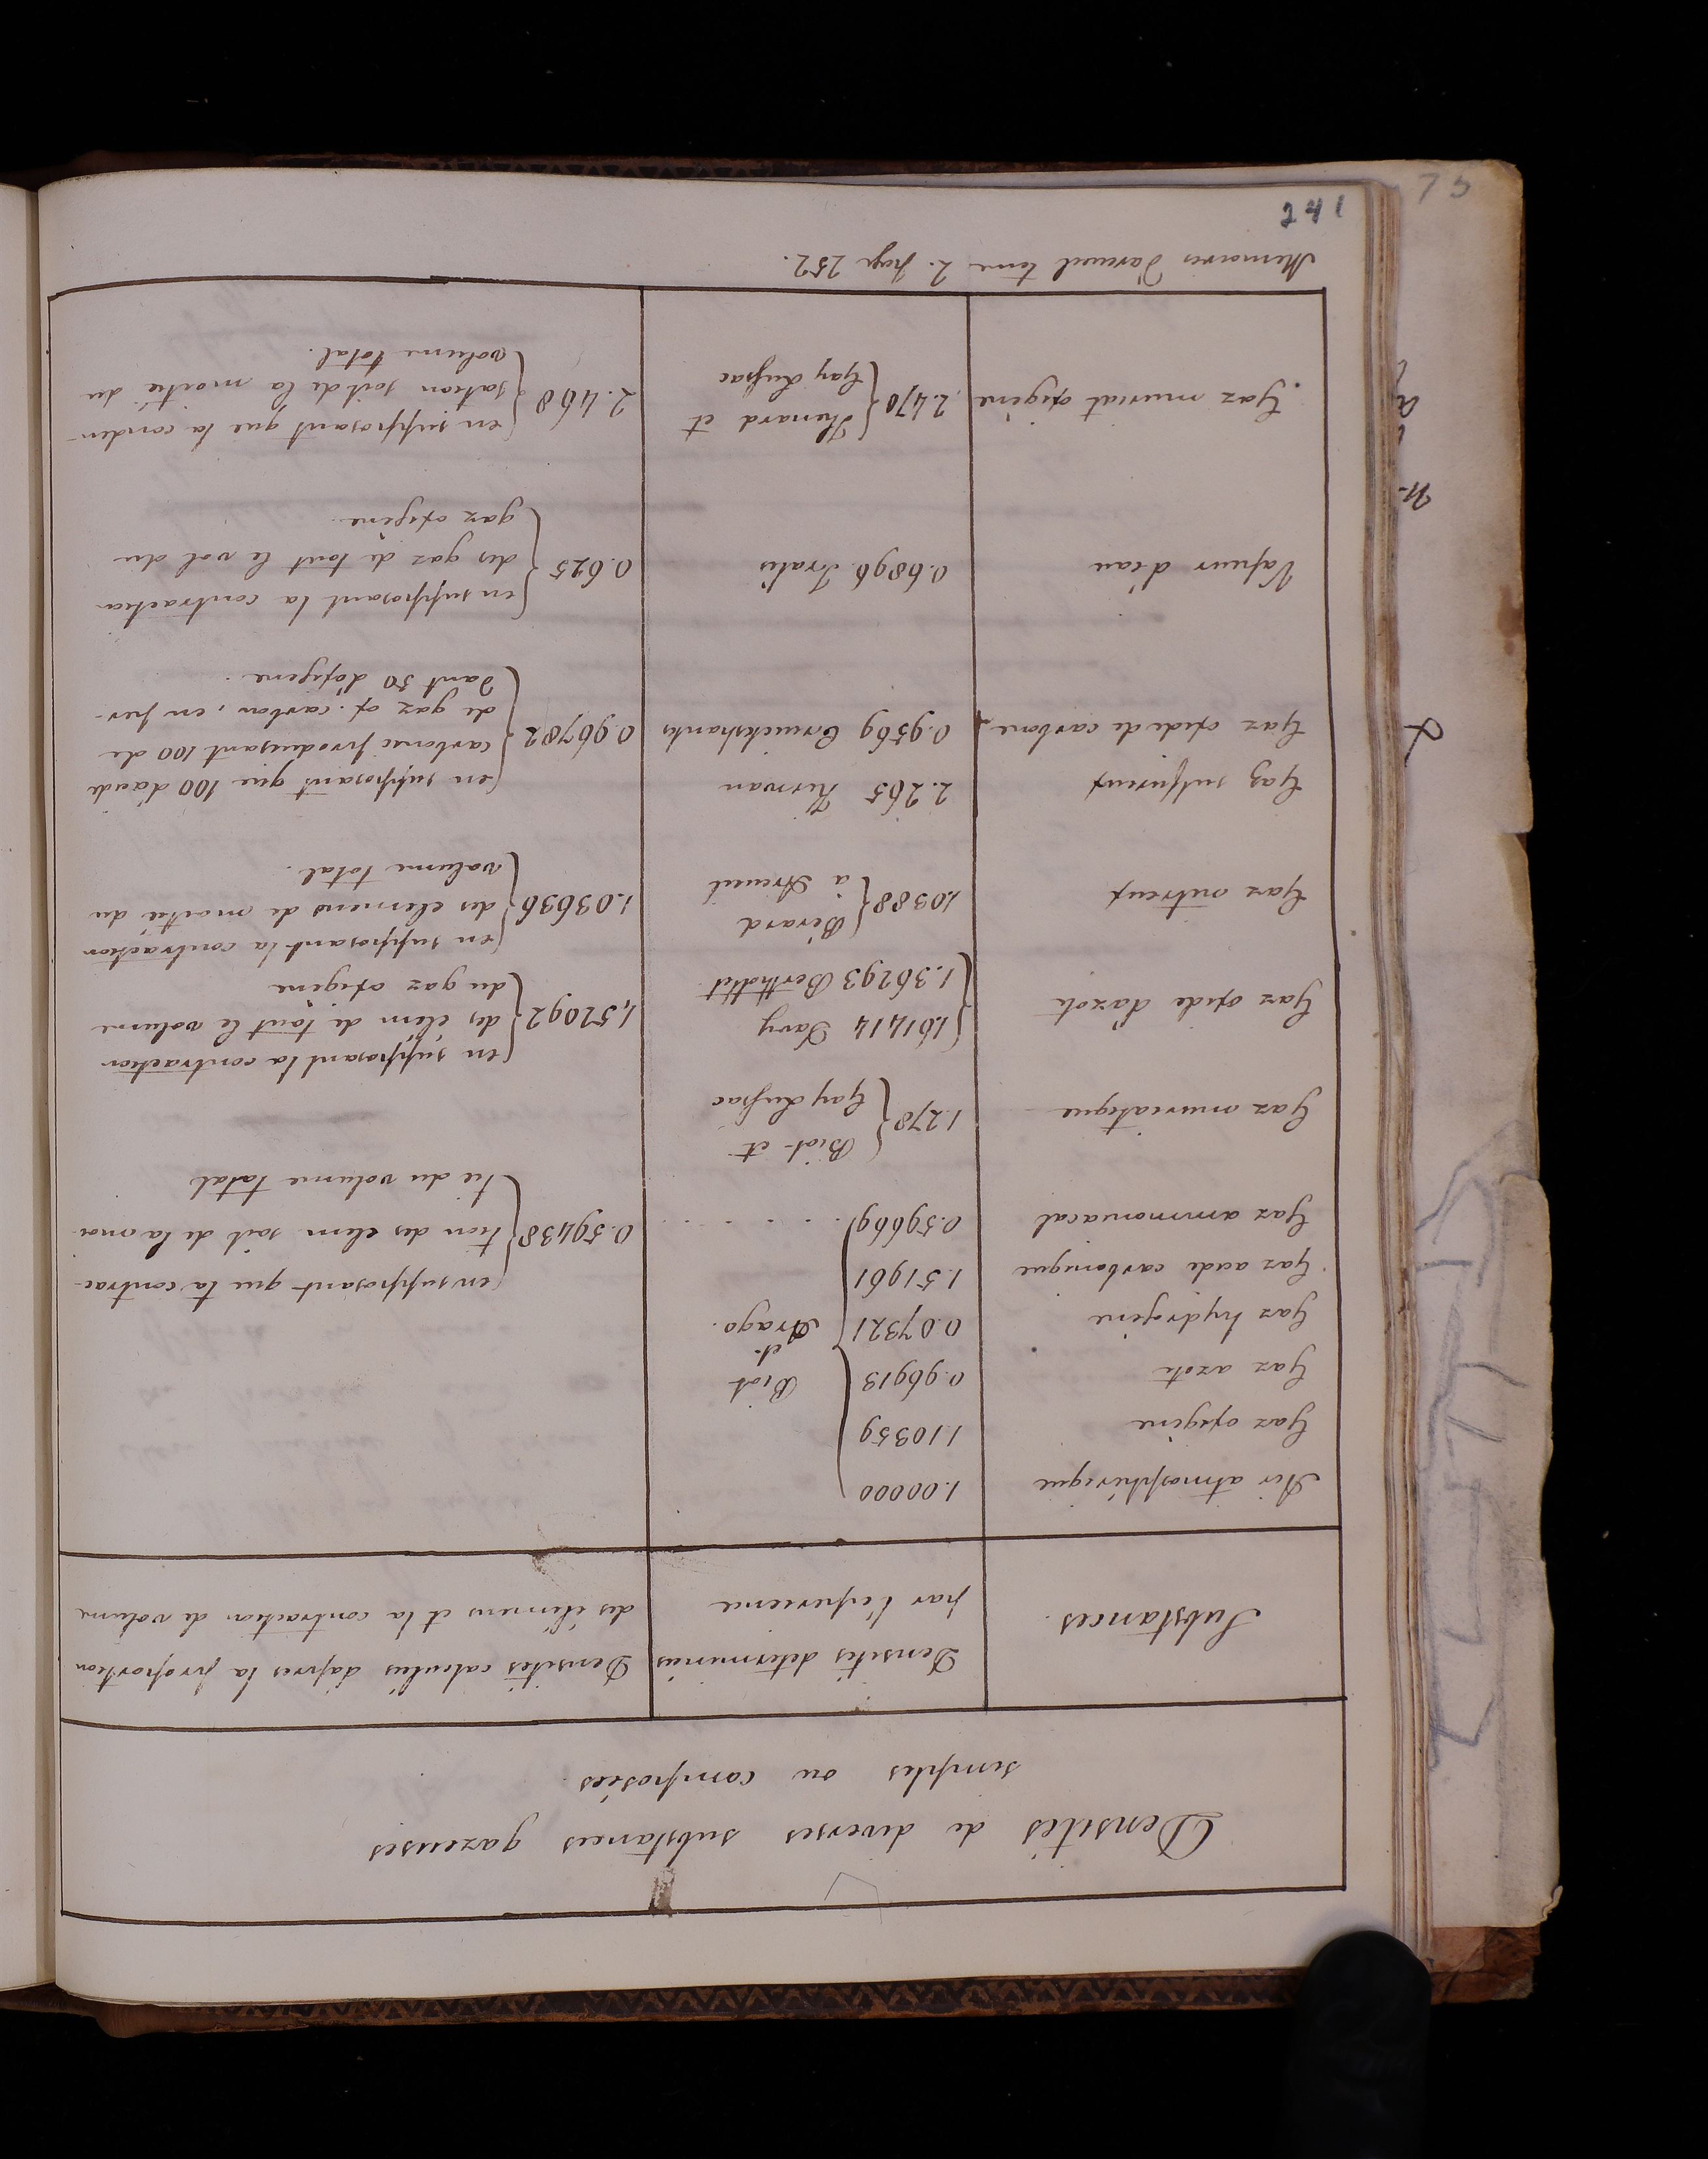 Densités de diverses substances gazeuses
simples ou composées
Substances.
Densités déterminées
par l'experience
Densités calculés dapres la proportion
des élémens et la contraction de volume
Air atmosphérique 1.00000
Gaz oxigène 1.10359
Gaz azote 0.96913 Biot
et
Gaz hydrogène 0.07321 Arago.
Gaz acide carbonique 1.51961
Gaz ammoniacal 0.59669 . . . . . .
en supposant que la contrac-
0.59438 tion des elem soit de la moi
tié du volume total
Gaz muriatique 1.278 Biot et
Gay Lussac
Gaz oxide d'azote 1.61414 Davy
1.36293 Berthollet
en supposant la contraction
1,52092 des elem de tout le volume
du gaz oxigène
Gaz nitreux 1.0388 Bérard
à Arcueil
en supposant la contraction
1.03636 des elemens de moitié du
volume total.
Gaz sulfureux 2.265 Kirwan
Gaz oxide de carbone 0.9569 Cruickshanks
en supposant que 100 d'acide
0.96782 carbonic produisant 100 de
de gaz ox. carbon, en per-
dant 50 d'oxigene.
Vapeur d'eau 0.6896 Tralès
en supposant la contraction
0.625 des gaz de tout le vol du
gaz oxigène
Gaz muriat oxigène 2.470 Thenard et
Gay Lussac
en supposant que la conden-
2.468 sation soit de la moitié du
volume total.
Memoires d'arcueil tome 2. page 252.
241
75